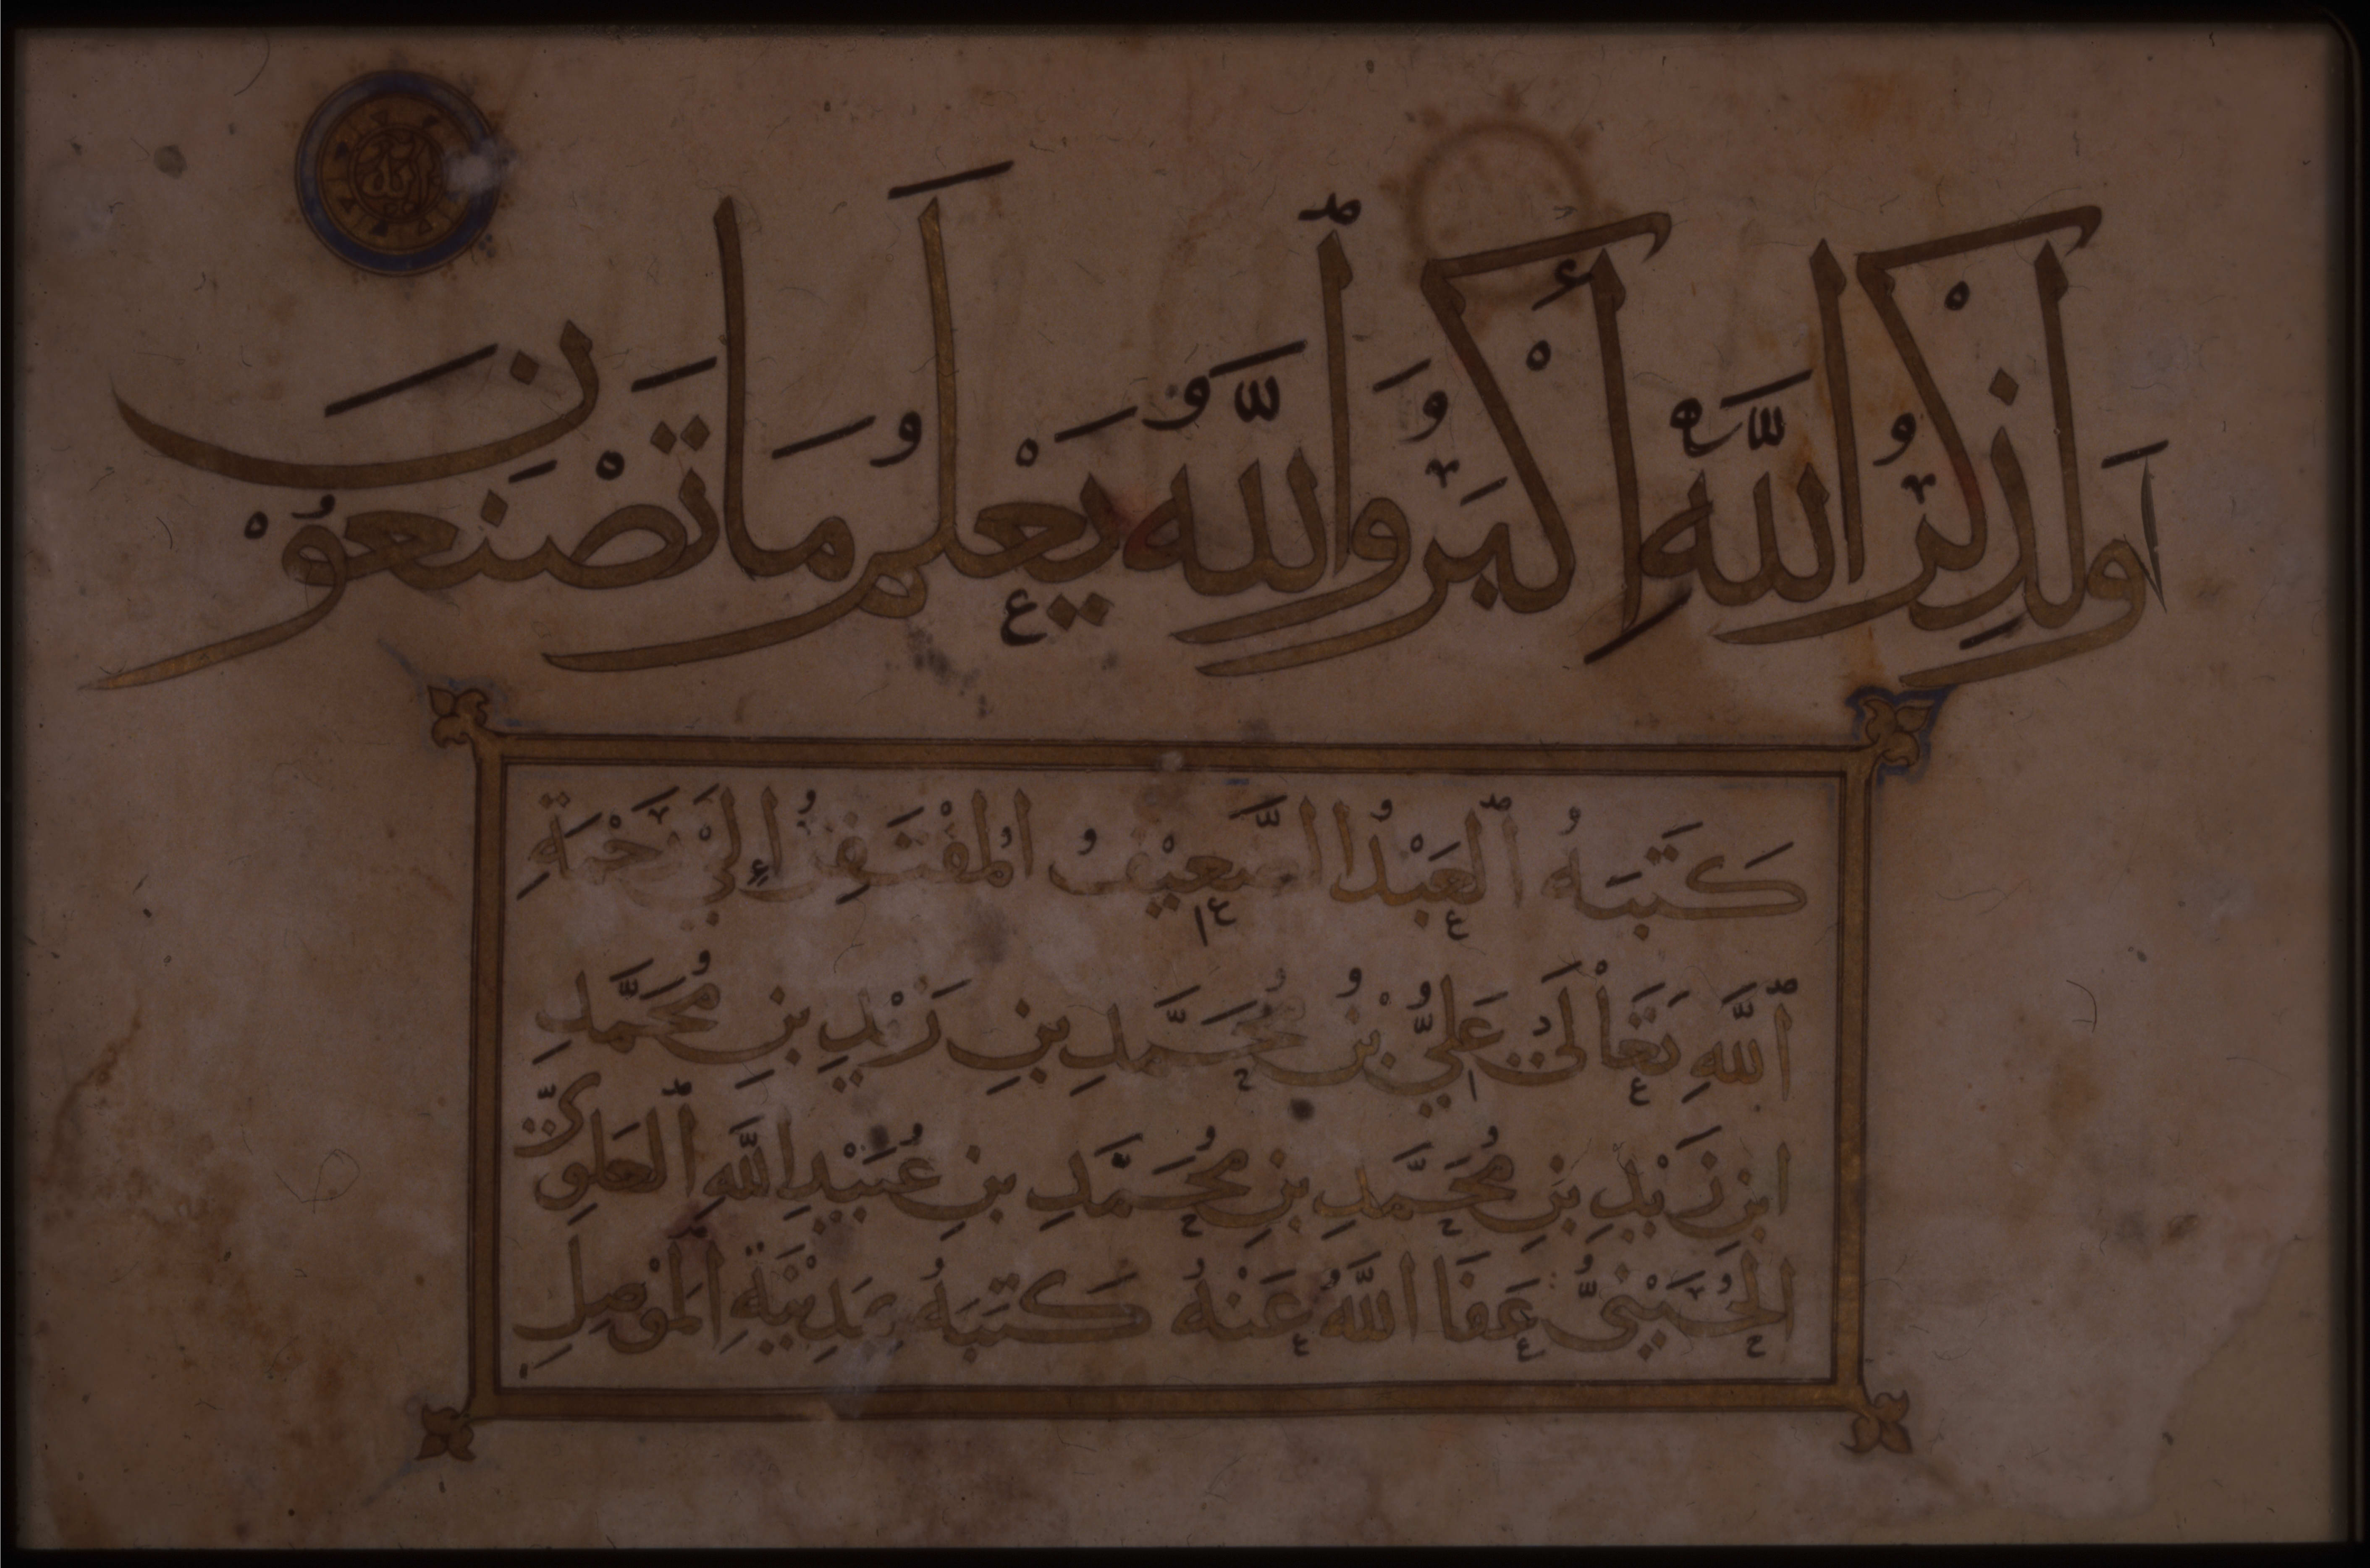 وَلَذِكْرُ اللَّهِ أَكْبَرُ وَاللَّهُ يَعْلَمُ مَا تَصْنَعُوْنَ
كَتَبَهُ الْعَبْدُ الضَّعِيْفُ الْمُفْتَقِرُ إِلَىْ رَحْمَةِ
اللَّهِ تَعَاْلَىْ عَلِيُّ بْنُ مُحَمَّدِ بنِ زَيْدِ بنِ مُحَمَّدِ
ابنِ زَيْدِ بنِ مُحَمَّدِ بنِ مُحَمَّدِ بنِ عُبَيْدِ اللَّهِ الْعَلَوِيُّ
الْحُسَيْنِيُّ عَفَا اللَّهُ عَنْهُ كَتَبَهُ بِمَدِيْنَةِ الْمَوْصِلِ